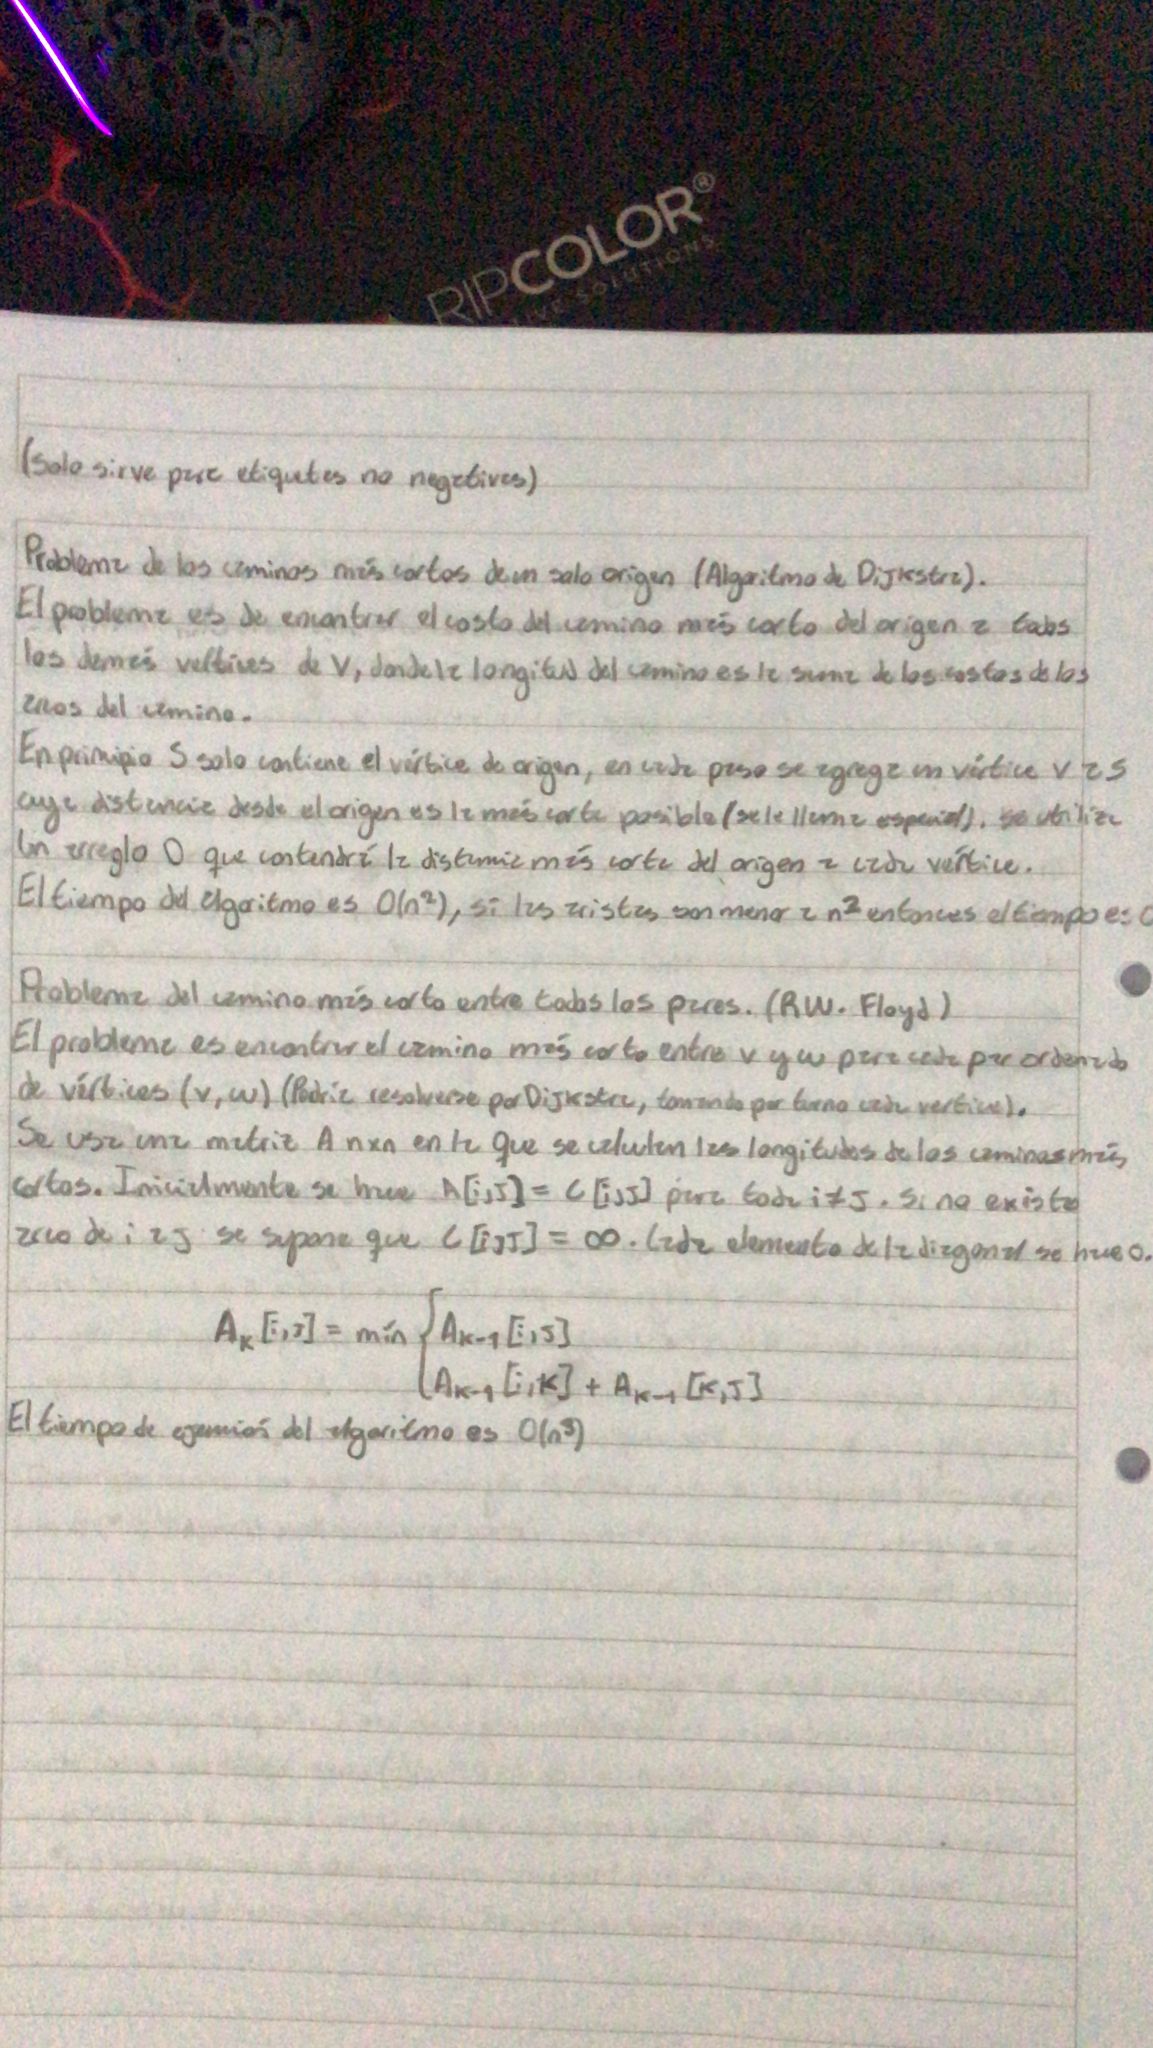 RIPCOLOR®
IVE SOLUTIONS
(Solo sirve para etiquetas no negativas)
Problema de los caminos más cortos de un solo origen (Algoritmo de Dijkstra).
El problema es de encontrar el costo del camino más corto del origen a todos
los demás vértices de V, donde la longitud del camino es la suma de los costos de los
arcos del camino.
En principio S solo contiene el vértice de origen, en cada paso se agrega un vértice v a S
cuya distancia desde el origen es la más corta posible (se le llama especial). se utiliza
Un arreglo D que contendrá la distancia más corta del origen a cada vértice.
El tiempo del algoritmo es O(n²), si las aristas son menor a n² entonces el tiempo es O
Problema del camino más corto entre todos los pares. (R.W. Floyd)
El problema es encontrar el camino más corto entre v y w para cada par ordenado
de vértices (v, w) (Podría resolverse por Dijkstra, tomando por turno cada vertice).
Se usa una matriz A nxn en la que se calculan las longitudes de los caminos más
cortos. Inicialmente se hace A[i,J] = C[i,J] para todo i≠J. Si no existe
arco de i a J se supone que C[i,J] = ∞. Cada elemento de la diagonal se hace 0.
Aₖ[i,J] = mín { Aₖ₋₁[i,J]
Aₖ₋₁[i,K] + Aₖ₋₁[K,J]
El tiempo de ejecución del algoritmo es O(n³)